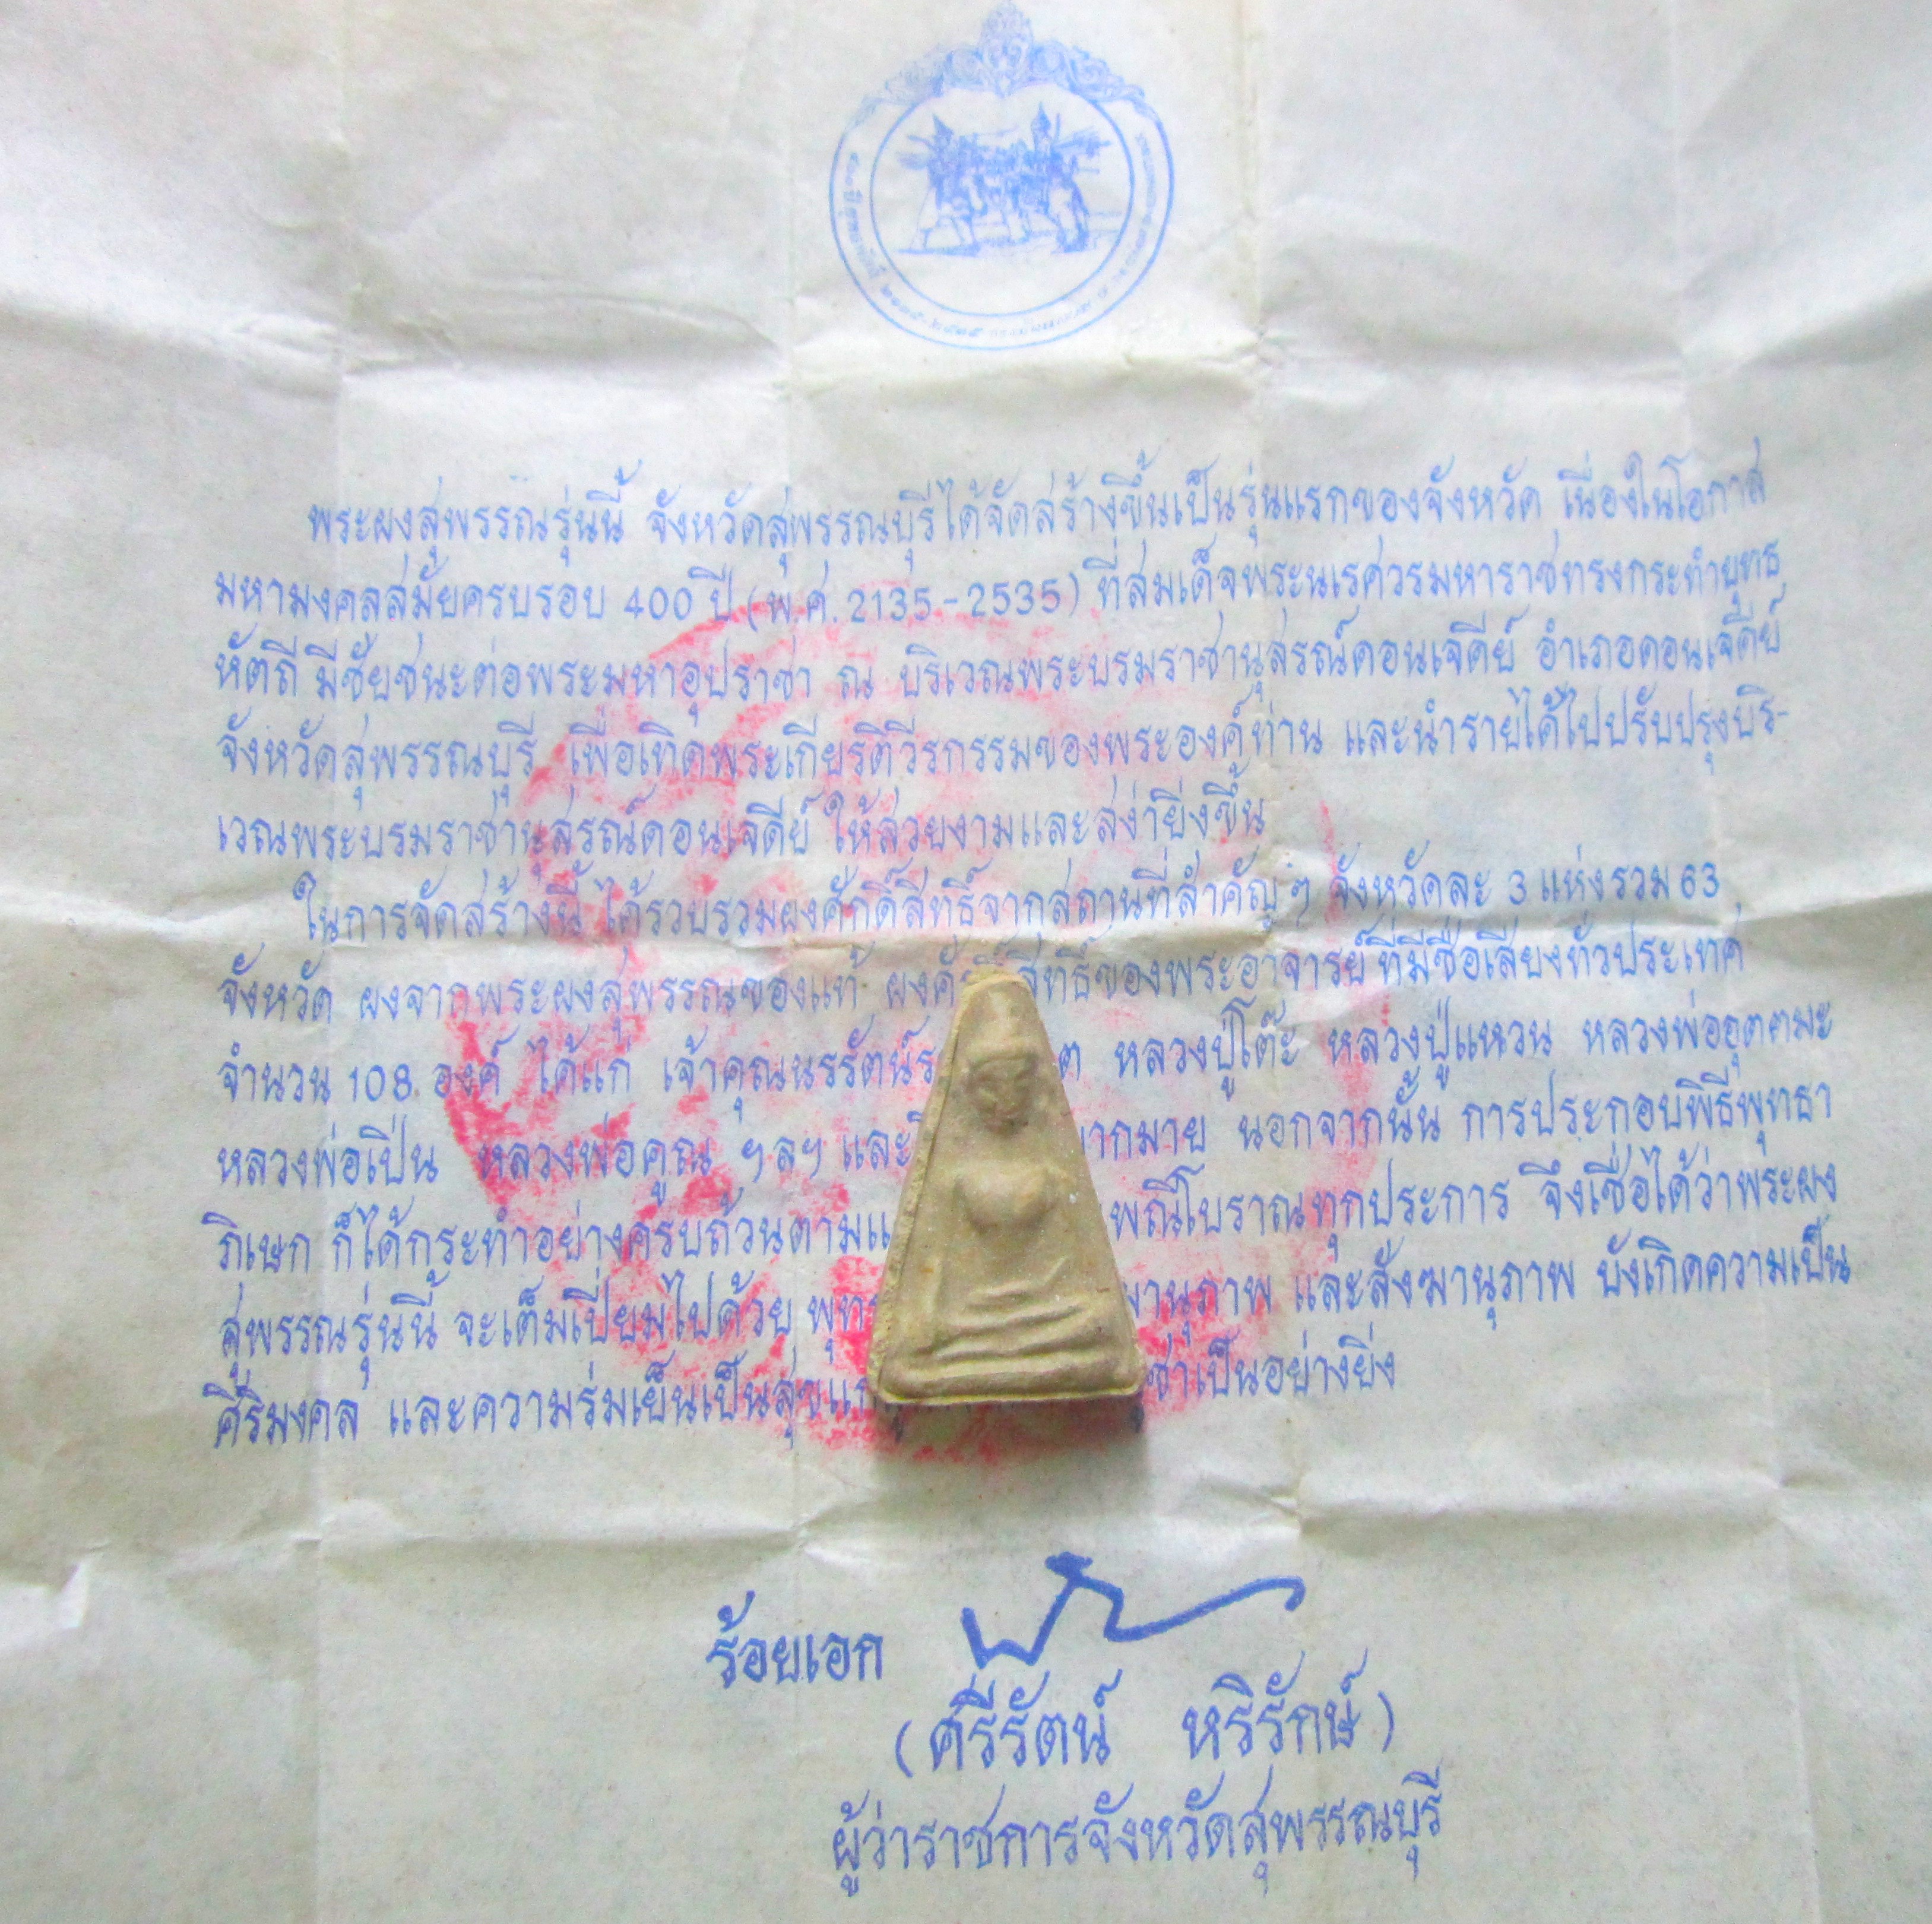 พระผงสุพรรณรุ่นนี้ จังหวัดสุพรรณบุรีได้จัดสร้างขึ้นเป็นรุ่นแรกของจังหวัด เนื่องในโอกาส
มหามงคลสมัยครบรอบ 400 ปี (พ.ศ. 2135-2535) ที่สมเด็จพระนเรศวรมหาราชทรงกระทำยุทธ
หัตถี มีชัยชนะต่อพระมหาอุปราชา ณ บริเวณพระบรมราชานุสรณ์ดอนเจดีย์ อำเภอดอนเจดีย์
จังหวัดสุพรรณบุรี เพื่อเทิดพระเกียรติวีรกรรมของพระองค์ท่าน และนำรายได้ไปปรับปรุงบริ-
เวณพระบรมราชานุสรณ์ดอนเจดีย์ ให้สวยงามและสง่ายิ่งขึ้น
ในการจัดสร้างนี้ ได้รวบรวมผงศักดิ์สิทธิ์จากสถานที่สำคัญๆ จังหวัดละ 3 แห่งรวม 63
จังหวัด ผงจากพระผงสุพรรณของแท้ สิทธิ์ของพระอาจารย์ที่มีชื่อเสียงทั่วประเทศ
จำนวน 108 องค์ ได้แก่ เจ้าคุณนรรัตน์ หลวงปู่โต๊ะ หลวงปู่แหวน หลวงพ่ออุตตมะ
หลวงพ่อเปิ่น หลวงพ่อคูณ ฯลฯ และ มากมาย นอกจากนั้น การประกอบพิธีพุทธา
ภิเษก ก็ได้กระทำอย่างครบถ้วนตาม พณีโบราณทุกประการ จึงเชื่อได้ว่าพระผง
สุพรรณรุ่นนี้ จะเต็มเปี่ยมไปด้วย พุทธ มานุภาพ และสังฆานุภาพ บังเกิดความเป็น
ศิริมงคล และความร่มเย็นเป็นสุข ชาเป็นอย่างยิ่ง
ร้อยเอก
(ศรีรัตน์ หริรักษ์)
ผู้ว่าราชการจังหวัดสุพรรณบุรี